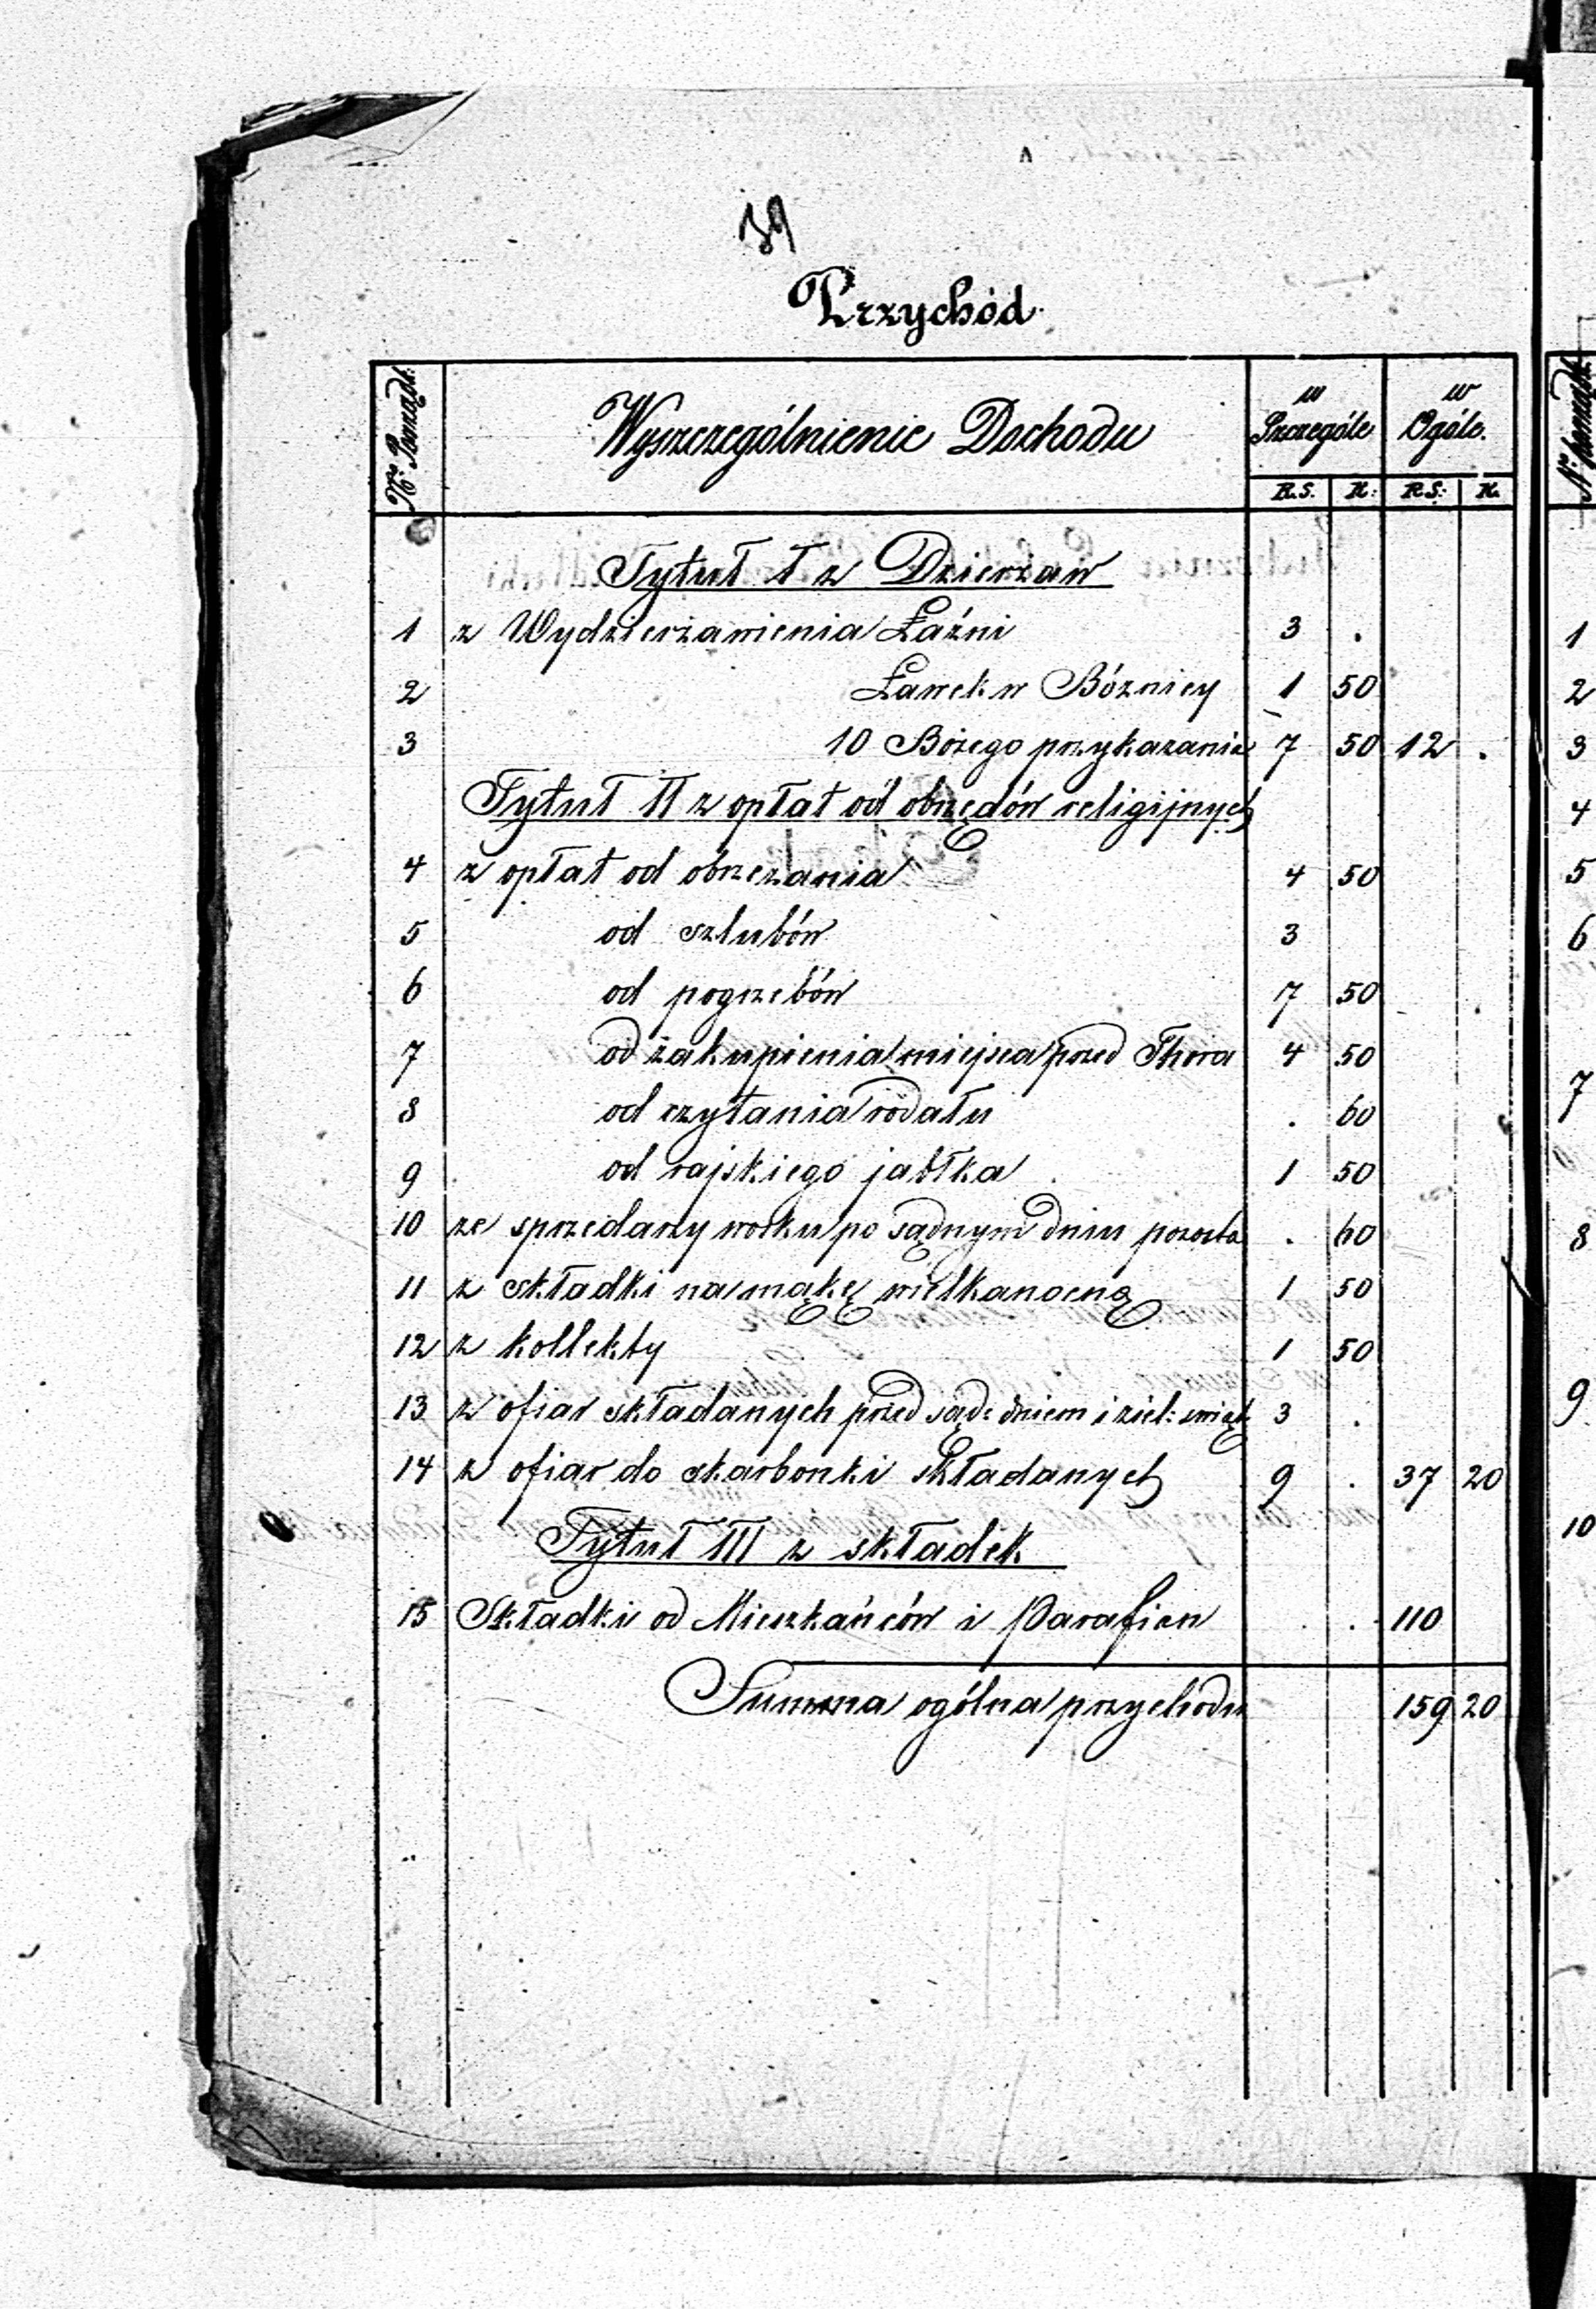 39
Przychód
Nro Porządk. Wyszczególnienie Dochodu w Szczególe w Ogóle.
R.S. K: R.S: K.
Tytuł I z Dzierżaw
1 z Wydzierżawienia Łaźni 3 .
2 Ławek w Bóżnicy 1 50
3 10 Bożego przykazania 7 50 12 .
Tytuł II z opłat od obrzędów religijnych
4 z opłat od obrzezania 4 50
5 od szlubów 3
6 od pogrzebów 7 50
7 od zakupienia miejsca przed Thora 4 50
8 od czytania rodału . 60
9 od rajskiego jabłka 1 50
10 ze sprzedaży wosku po sądnym dniu pozosta . 60
11 z składki na mąkę wielkanocną 1 50
12 z kollekty 1 50
13 z ofiar składanych przed sąd: dniem i ziel: świąt 3 .
14 z ofiar do skarbonki składanych 9 . 37 20
Tytuł III z składek
15 Składki od Mieszkańców i Parafian . . 110
Summa ogólna przychodu 159 20
Nr Porządk.
1
2
3
4
5
6
7
8
9
10